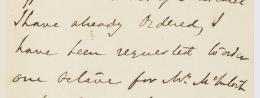 I have already Ordered, I
have been requested to order
one octave for Mr. McIntosh